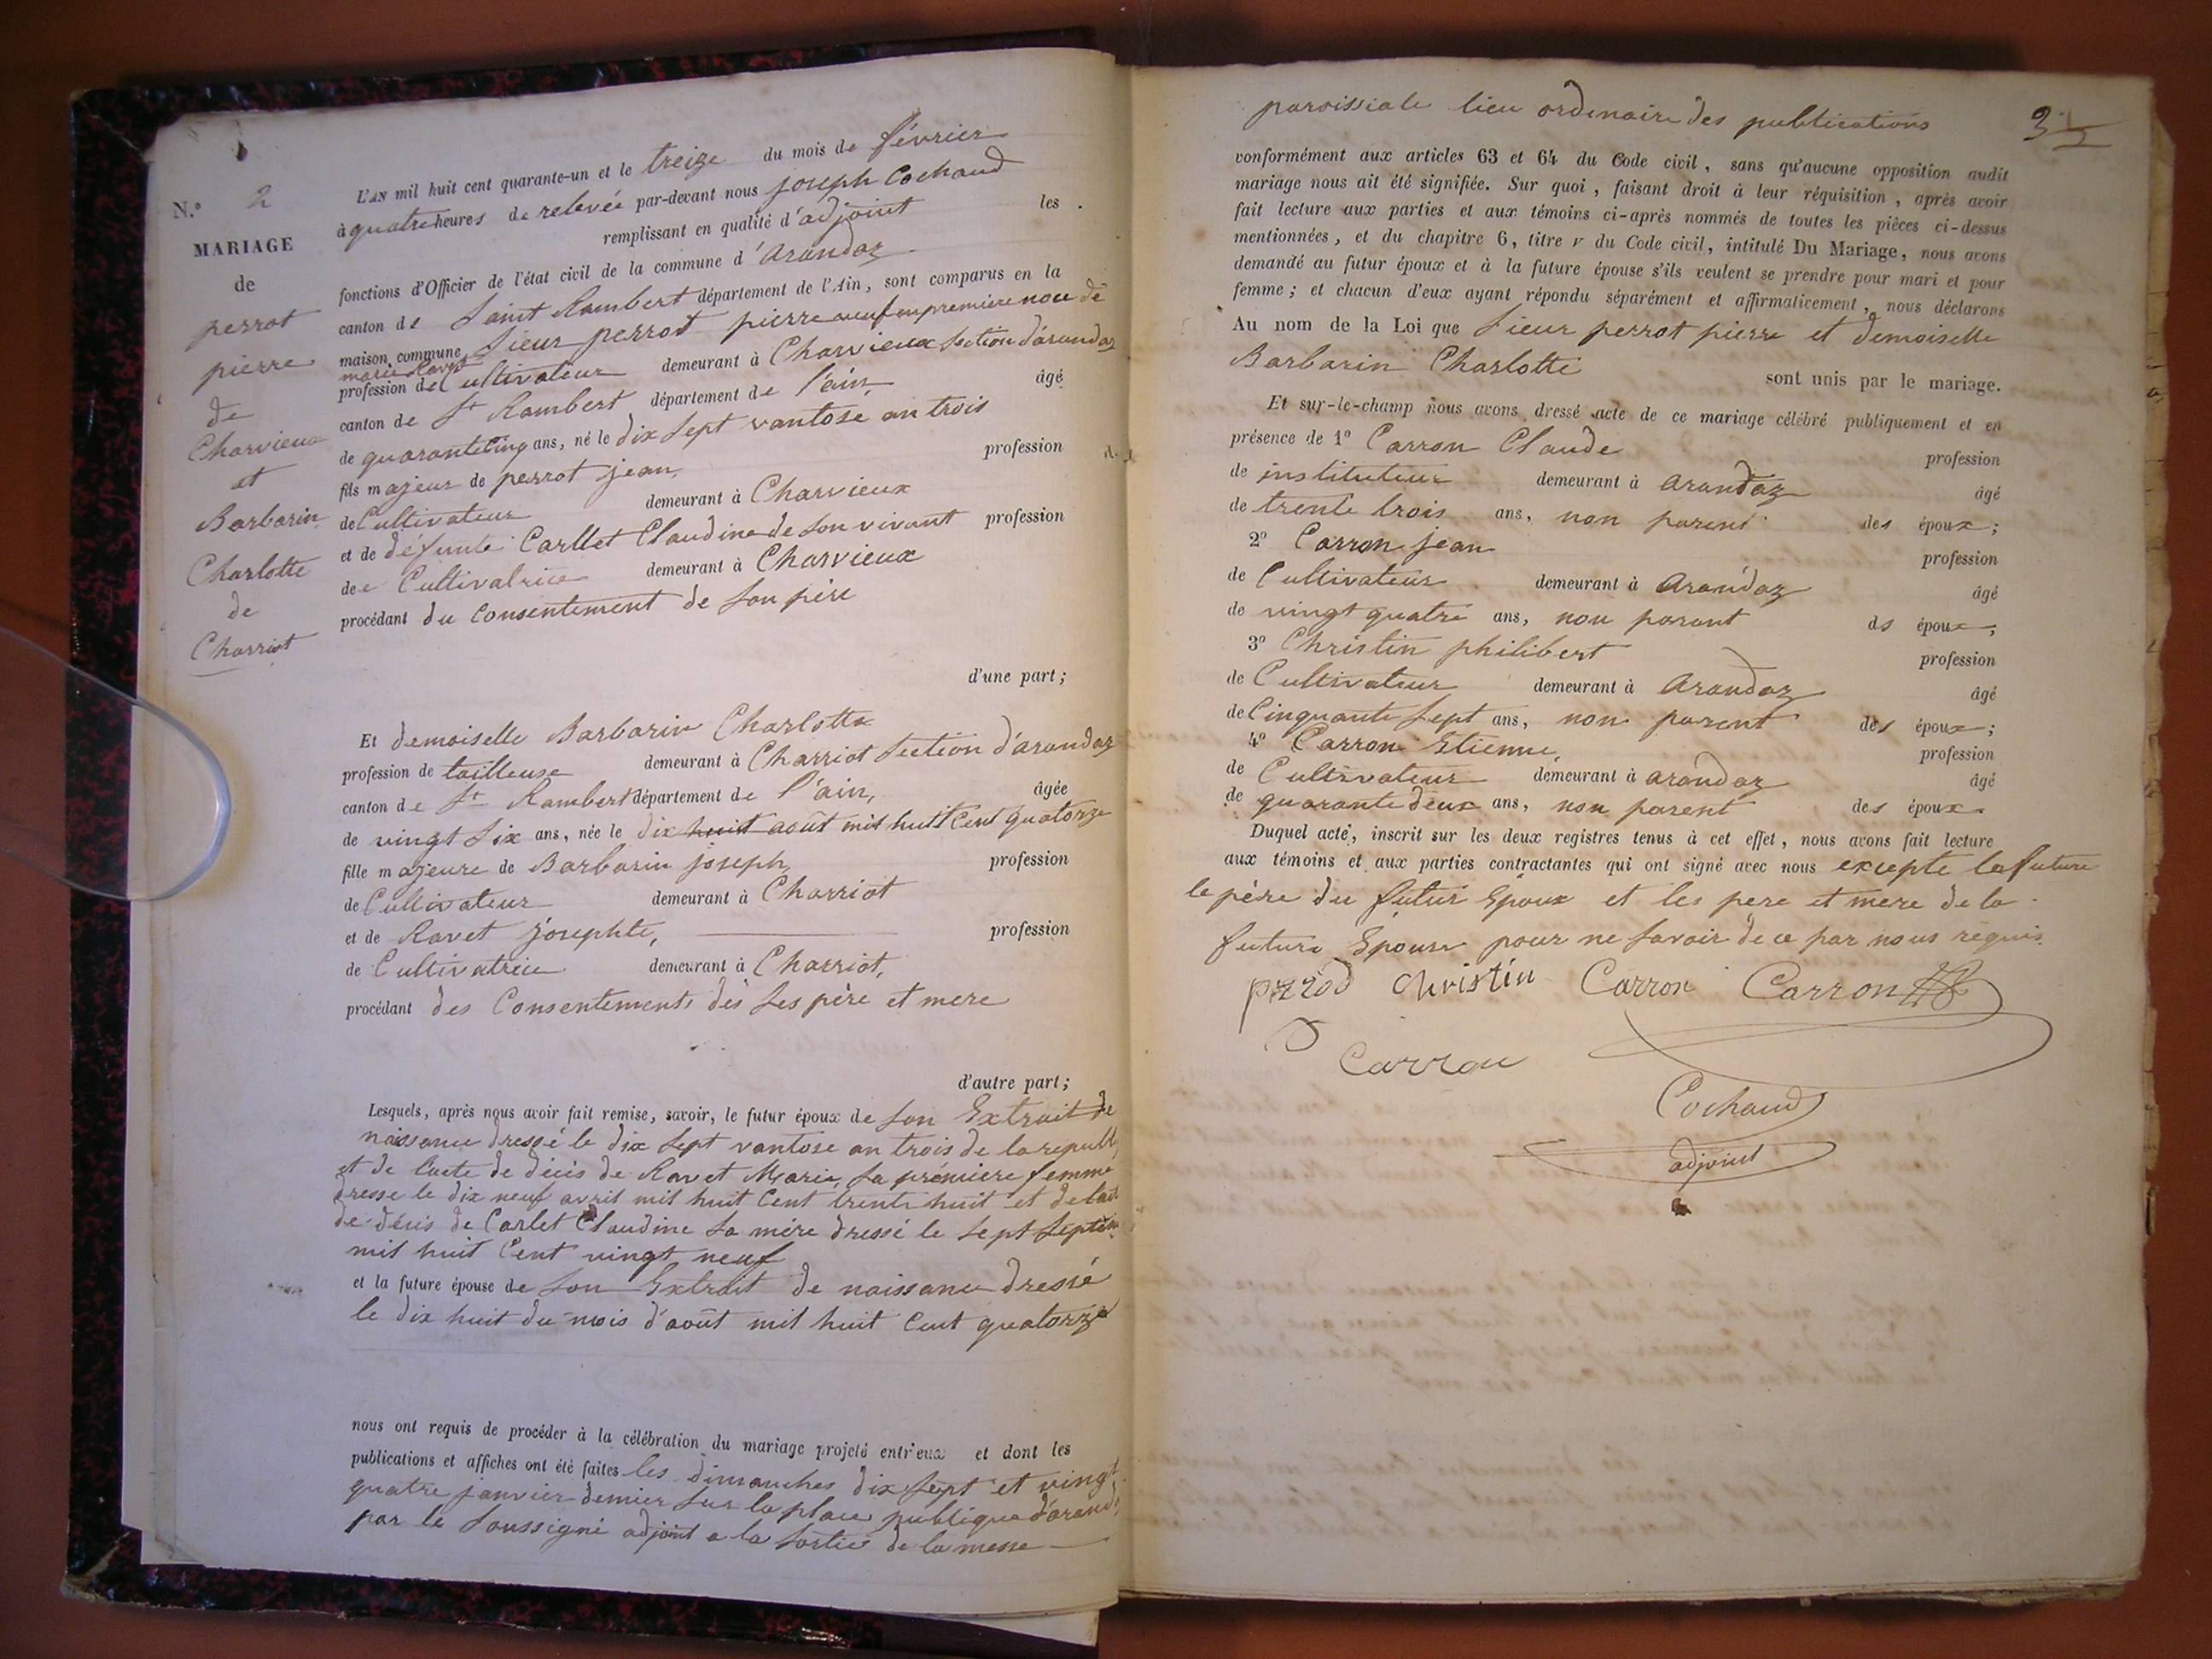 N.º 2
MARIAGE
de
perrot
pierre
de
Charvieux
et
Barbarin
Charlotte
de
Charriot
L'AN mil huit cent quarante-un et le treize du mois de février
à quatre heures de relevée par-devant nous joseph Cochaud
remplissant en qualité d'adjoint les
fonctions d'Officier de l'état civil de la commune d'arandaz
canton de Saint Rambert département de l'Ain, sont comparus en la
maison commune Sieur perrot pierre veuf en première noce de
marie Ravet
profession de Cultivateur demeurant à Charvieux Section d'arandaz
canton de St Rambert département de l'ain, âgé
de quarante Cinq ans, né le dix Sept vantose an trois
fils majeur de perrot jean, profession
de Cultivateur demeurant à Charvieux
et de défunte Carllet Claudine de Son vivant profession
de Cultivatrice demeurant à Charvieux
procédant du Consentement de Son père
d'une part;
Et demoiselle Barbarin Charlotte
profession de tailleuse demeurant à Charriot Section d'arandaz
canton de St Rambert département de l'ain, âgée
de vingt Six ans, née le dix huit août mil huit Cent quatorze
fille majeure de Barbarin joseph, profession
de Cultivateur demeurant à Charriot
et de Ravet josephte, profession
de Cultivatrice demeurant à Charriot,
procédant des Consentements des Ses père et mere
d'autre part;
Lesquels, après nous avoir fait remise, savoir, le futur époux de Son Extrait de
naissance dressé le dix Sept vantose an trois de la republ
et de l'acte de décès de Ravet Marie, Sa première femme
dresse le dix neuf avril mil huit Cent trente huit et de l'act
de décis de Carlet Claudine Sa mère dressé le Sept Septem
mil huit Cent vingt neuf
et la future épouse de Son Extrait de naissance dressé
le dix huit du mois d'août mil huit Cent quatorze
nous ont requis de procéder à la célébration du mariage projeté entr'eux et dont les
publications et affiches ont été faites les dimanches dix Sept et vingt
quatre janvier dernier Sur la place publique d'arand
par le Soussigné adjoint a la Sortie de la messe
paroissiale lieu ordenaire des publications
conformément aux articles 63 et 64 du Code civil, sans qu'aucune opposition audit
mariage nous ait été signifiée. Sur quoi, faisant droit à leur réquisition, après avoir
fait lecture aux parties et aux témoins ci-après nommés de toutes les pièces ci-dessus
mentionnées, et du chapitre 6, titre v du Code civil, intitulé Du Mariage, nous avons
demandé au futur époux et à la future épouse s'ils veulent se prendre pour mari et pour
femme; et chacun d'eux ayant répondu séparément et affirmativement, nous déclarons
Au nom de la Loi que Sieur perrot pierre et demoiselle
Barbarin Charlotte
sont unis par le mariage.
Et sur-le-champ nous avons dressé acte de ce mariage célébré publiquement et en
présence de 1º Carron Claude profession
de instituteur demeurant à arandaz âgé
de trente trois ans, non parent des époux;
2º Carron jean profession
de Cultivateur demeurant à arandaz âgé
de vingt quatre ans, non parant ds époux;
3º Christin philibert profession
de Cultivateur demeurant à arandaz âgé
de Cinquante Sept ans, non parent des époux;
4º Carron Etienne, profession
de Cultivateur demeurant à arandaz âgé
de quarante deux ans, non parent des époux.
Duquel acte, inscrit sur les deux registres tenus à cet effet, nous avons fait lecture
aux témoins et aux parties contractantes qui ont signé avec nous excepte la future
le père du futur Epoux et les pere et mere de la
future Epouse pour ne Savoir de ce par nous réquis
Christin Carron Carron
Carron
Cochaud
adjoint